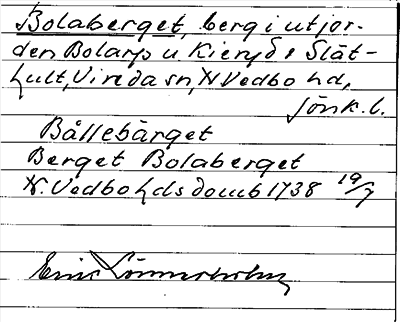 Bolaberget, berg i utjor-
den Bolarp u. Kieryd & Slät-
hult, Vireda sn, N Vedbo hd,
Jönk. l.
Bållebärget
Berget Bolaberget
N. Vedbo hds domb 1738 19/7